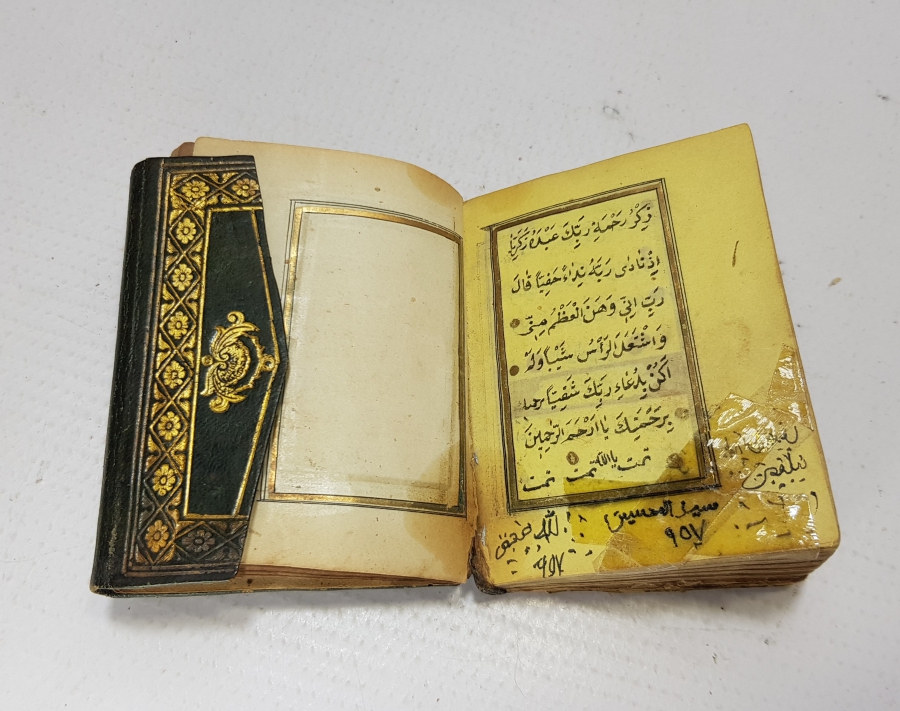 ذِكْرُ رَحْمَةِ رَبِّكَ عَبْدَهُ زَكَرِيَّا
إِذْ نَادٰى رَبَّهُ نِدَاءً خَفِيًّا قَالَ
رَبِّ اِنِّي وَهَنَ الْعَظْمُ مِنِّي
وَاشْتَعَلَ الرَّأْسُ شَيْبًا وَلَمْ
اَكُنْ بِدُعَاءِ رَبِّكَ شَقِيًّا
بِرَحْمَتِكَ يَا اَرْحَمَ الرَّاحِمِينَ
تمت ياالله تمت تمت
الحسين
٩٥٧